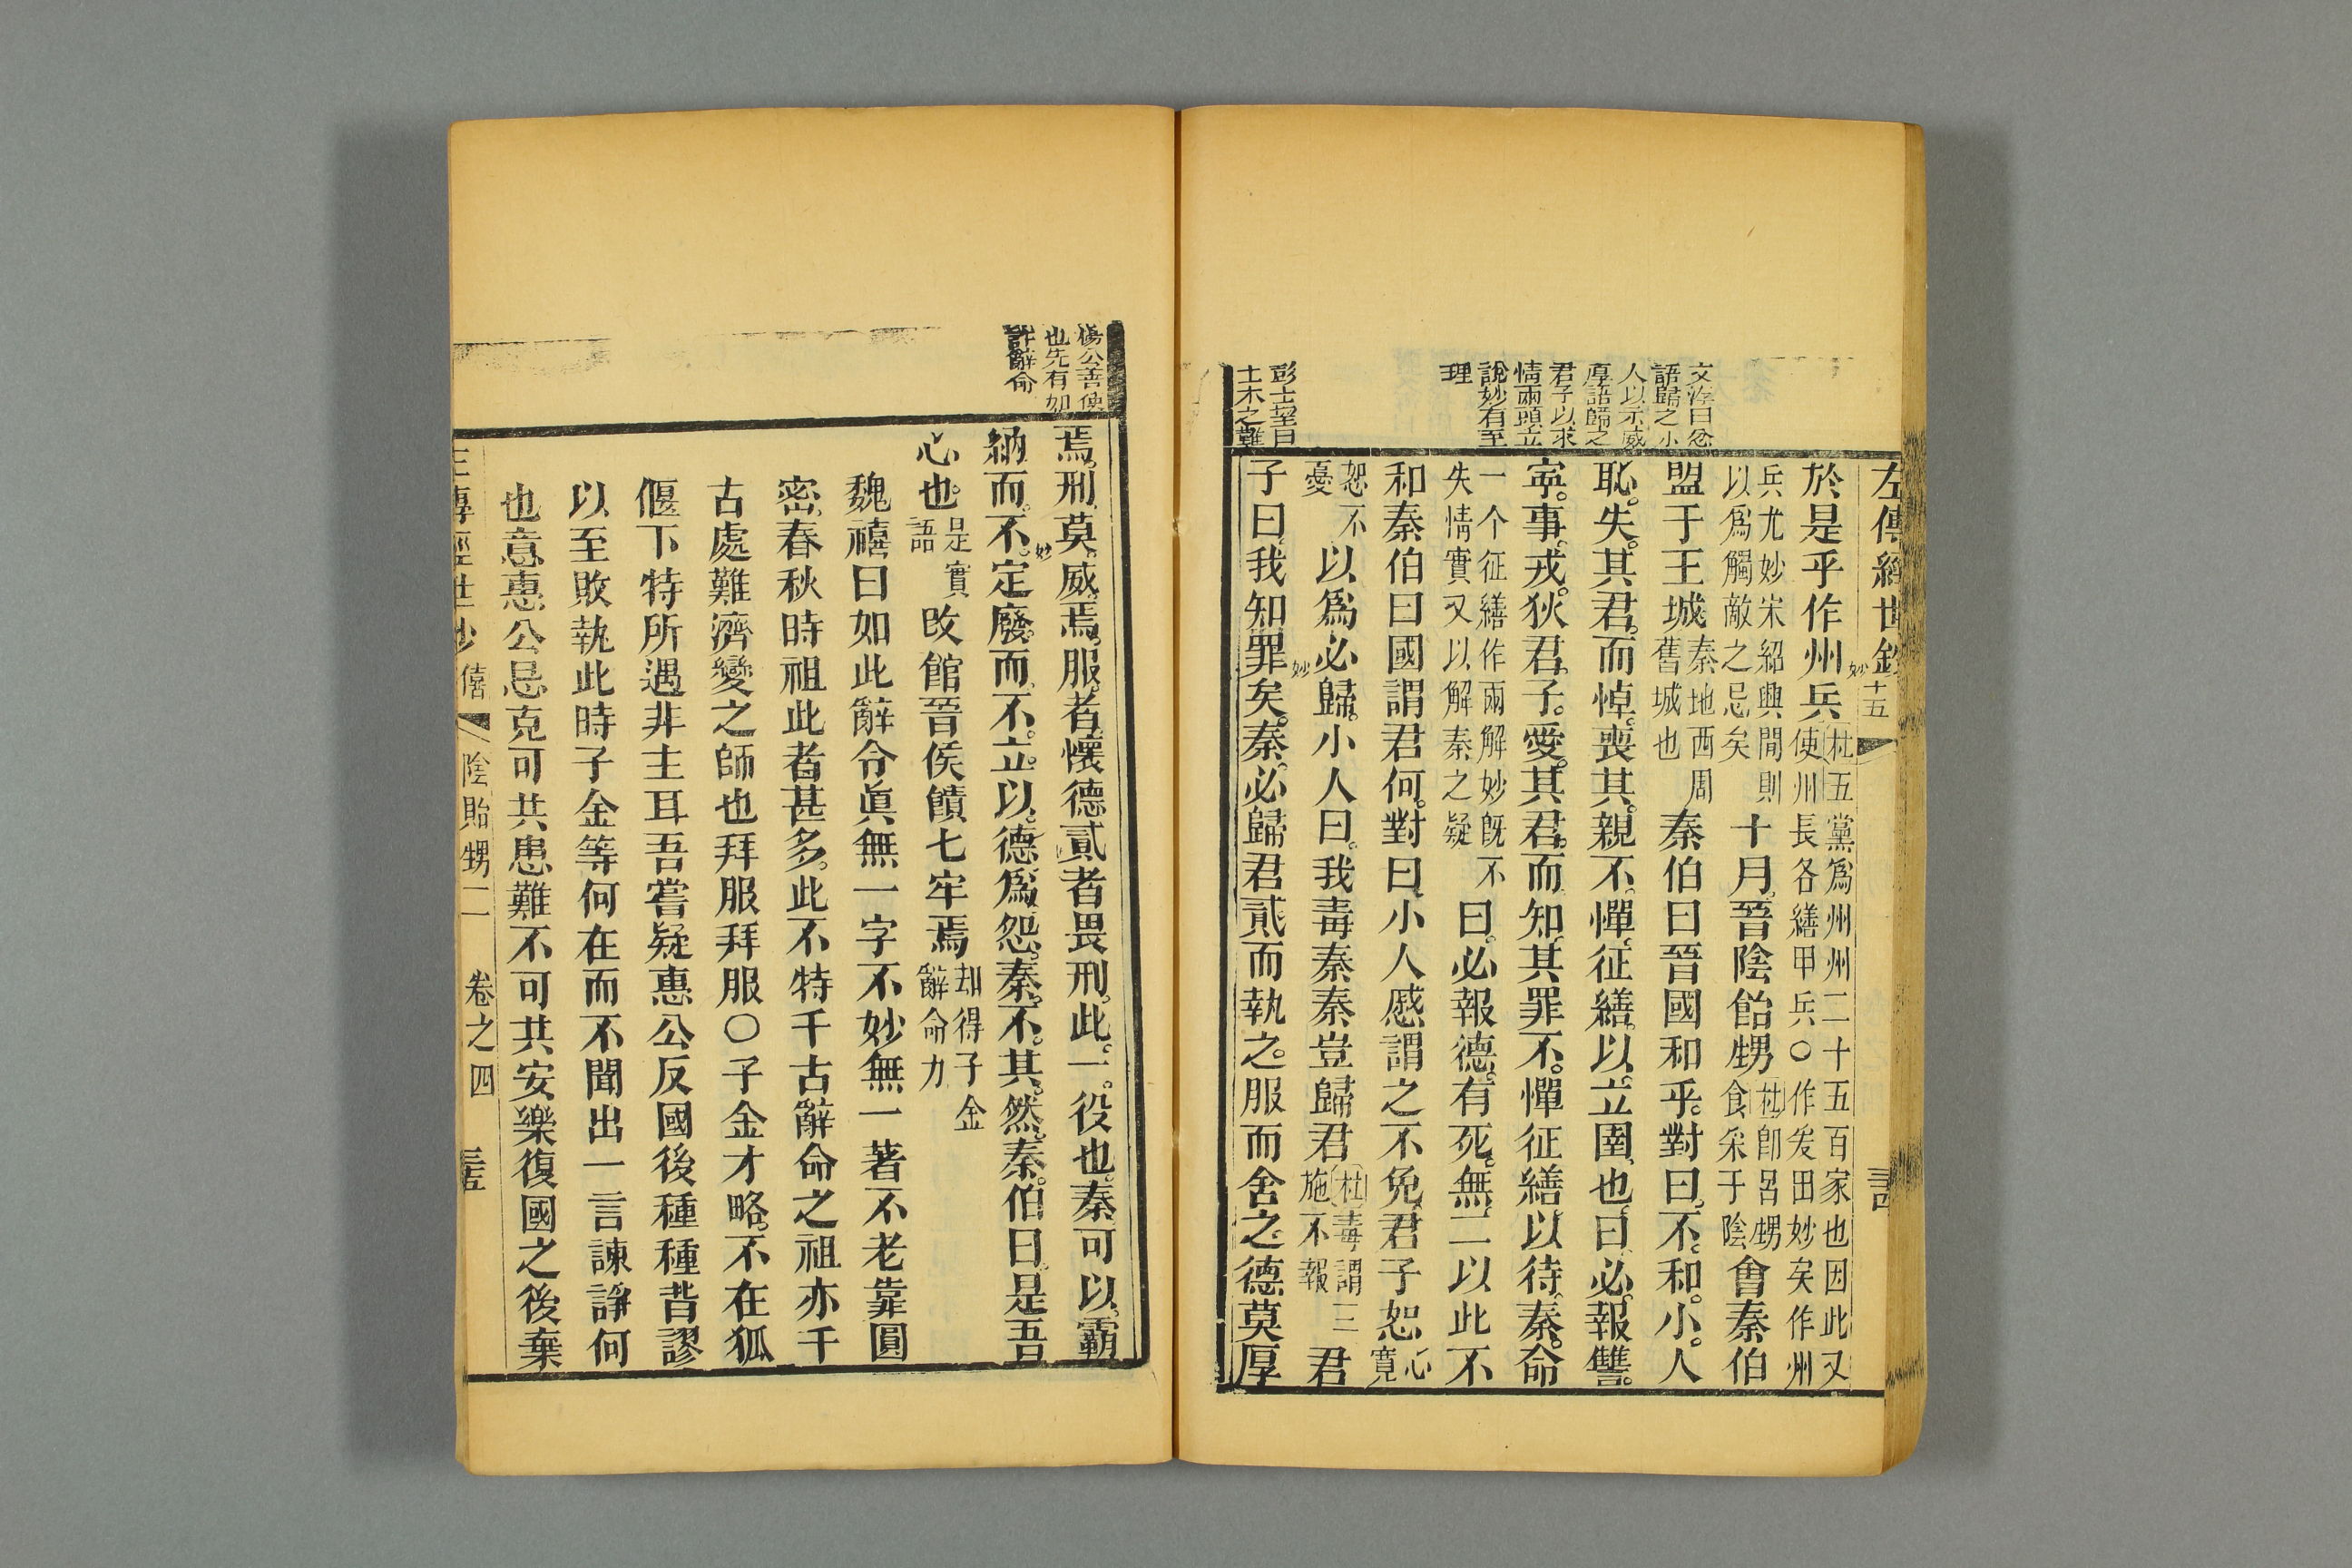 左傳經世鈔 十五
於是乎作州兵妙杜五黨為州州二十五百家也因此又使州長各繕甲兵○作爰田妙矣作州
兵尤妙宋紹興間則以為觸敵之忌矣十月晉陰飴甥杜即呂甥食采于陰會秦伯
盟于王城秦地西周舊城也秦伯曰晉國和乎對曰不和小人
恥失其君而悼喪其親不憚征繕以立圉也曰必報讐
寧事戎狄君子愛其君而知其罪不憚征繕以待秦命
一个征繕作兩解妙既不失情實又以解秦之疑曰必報德有死無二以此不
和秦伯曰國謂君何對曰小人慼謂之不免君子恕心寬
恕不憂以為必歸小人曰我毒秦秦豈歸君杜毒謂三施不報君
子曰我知罪矣妙秦必歸君貳而執之服而舍之德莫厚
文淳曰忿
語歸之小
人以示威
厚語歸之
君子以求
情兩頭立
說妙有至
理
彭士望曰
土木之難
焉刑莫威焉服者懷德貳者畏刑此一役也秦可以霸
納而不妙定廢而不立以德為怨秦不其然秦伯曰是吾
心也是實語改館晉侯饋七牢焉却得子金辭命力
魏禧曰如此辭令眞無一字不妙無一著不老靠圓
密春秋時祖此者甚多此不特千古辭命之祖亦千
古處難濟變之師也拜服拜服○子金才略不在狐
偃下特所遇非主耳吾嘗疑惠公反國後種種昔謬
以至敗執此時子金等何在而不聞出一言諫諍何
也意惠公忌克可共患難不可共安樂復國之後棄
楊公善使
也先有如
許辭命
僖 陰飴甥二 卷之四